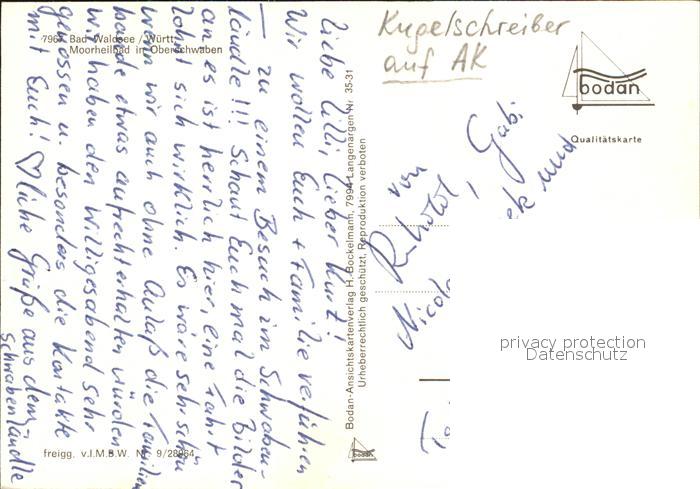 7967 Bad Waldsee /Württ.
Moorheilbad in Oberschwaben
Liebe Lilli, lieber Kurt!
Wir wollen Euch + Familie verführen
— zu einem Besuch im Schwaben-
ländle!!! Schaut Euch mal die Bilder
an, es ist herrlich hier, eine Fahrt
lohnt sich wirklich. Es wäre sehr schön
wenn wir auch ohne Anlaß die Familien
bande etwas aufrechterhalten würden
wir haben den Willigesabend sehr
genossen u. besonders die Kontakte
mit Euch! ♡liche Grüße aus dem
Schwabenländle
freigg. v.I.M.B.W. Nr. 9/28964
Bodan-Ansichtskartenverlag H. Bockelmann, 7994 Langenargen Nr. 35-31
Urheberrechtlich geschützt, Reproduktion verboten
bodan
Kugelschreiber
auf AK
bodan
Qualitätskarte
von
Gabi
und
privacy protection
Datenschutz